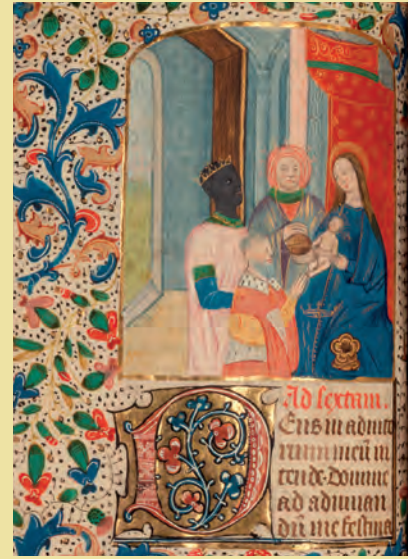 Ad sextam.
Deus in adiuto
rium meū in
tende. Domine
ad adiuuan
dū me festina